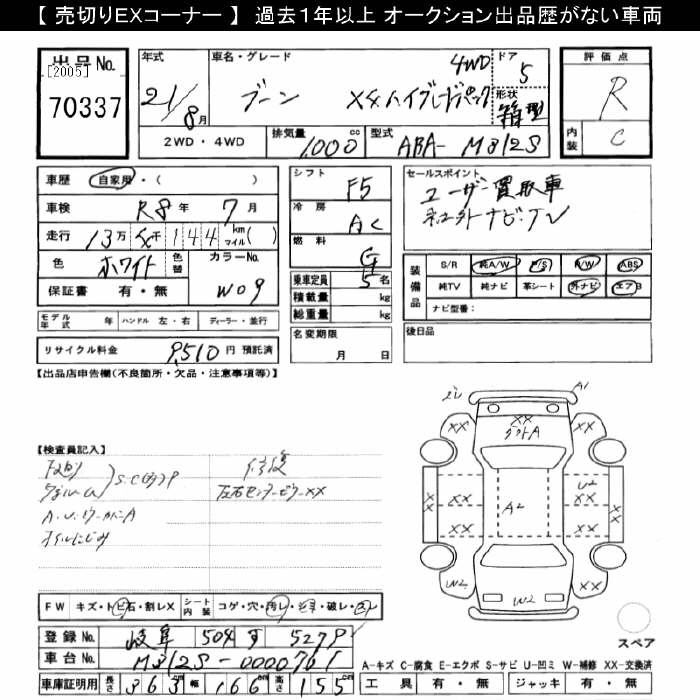 【 売切りEXコーナー 】 過去1年以上 オークション出品歴がない車両
出品No. [2005] 70337
年式 21/8月
車名・グレード ブーン X 4WD
ドア 5
形状 箱型
2WD・4WD 排気量 1,000 cc 型式 ABA-M312S
評価点 R
内装 C
車歴 自家用・( )
車検 R8年 7月
走行 13万 千144 km マイル( )
色 ホワイト 色替 カラーNo. W09
保証書 有・無
シフト F5
冷房 AC
燃料 G
乗車定員 5名
積載量 kg
総重量 kg
セールスポイント
ユーザー買取車
ナビ・TV
装備品 S/R 純A/W P/S R/W ABS
純TV 純ナビ 革シート 外ナビ エアB
ナビ型番:
モデル年式 年 ハンドル 左・右 ディーラー・並行
名変期限 月 日
後日品
リサイクル料金 9,510円 預託済
【出品店申告欄(不良箇所・欠品・注意事項等)】
A1
XX XX XX
A
【検査員記入】
修復
左右センターピラーXX
オイルにじみ
XX U2 XX
XX A2 XX
XX XX
W2 W2 XX
FW キズ・トビ石・割レX シート内装 コゲ・穴・汚レ・シミ・破レ・スレ
登録No. 岐阜 504 す 5279
車台No. M312S-0000761
スペア
A-キズ C-腐食 E-エクボ S-サビ U-凹ミ W-補修 XX-交換済
車庫証明用 長さ 363 cm 幅 166 cm 高さ 155 cm
工具 有・無 ジャッキ 有・無